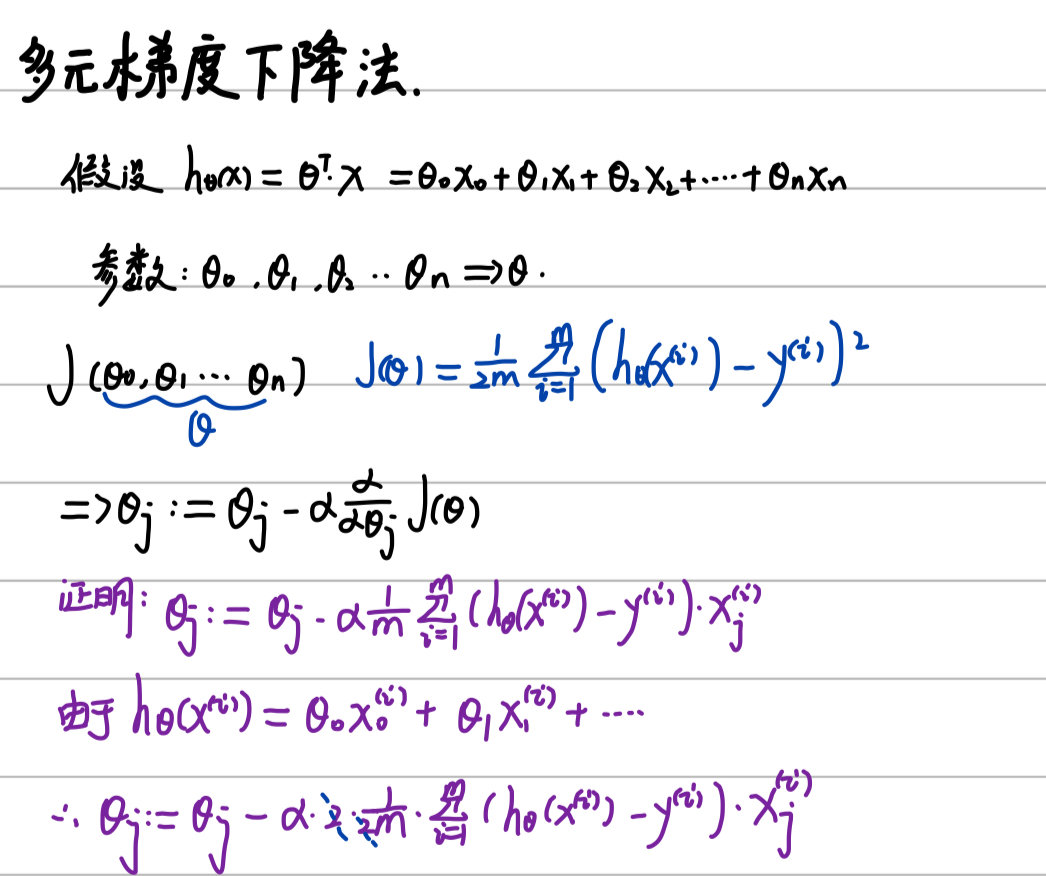 多元梯度下降法.
假设 hθ(x) = θᵀ·x = θ₀x₀ + θ₁x₁ + θ₂x₂ + ····· + θₙxₙ
参数: θ₀ , θ₁ , θ₂ ·· θₙ ⇒ θ.
J(θ₀, θ₁ ··· θₙ) J(θ) = 1/2m ∑ᵢ₌₁ᵐ (hθ(x⁽ⁱ⁾) − y⁽ⁱ⁾)²
θ
=> θⱼ := θⱼ − α α/αθⱼ J(θ)
证明: θⱼ := θⱼ − α 1/m ∑ᵢ₌₁ᵐ (hθ(x⁽ⁱ⁾) − y⁽ⁱ⁾)·xⱼ⁽ⁱ⁾
由于 hθ(x⁽ⁱ⁾) = θ₀x₀⁽ⁱ⁾ + θ₁x₁⁽ⁱ⁾ + ····
∴ θⱼ := θⱼ − α·2·1/2m·∑ᵢ₌₁ᵐ (hθ(x⁽ⁱ⁾) − y⁽ⁱ⁾)·xⱼ⁽ⁱ⁾